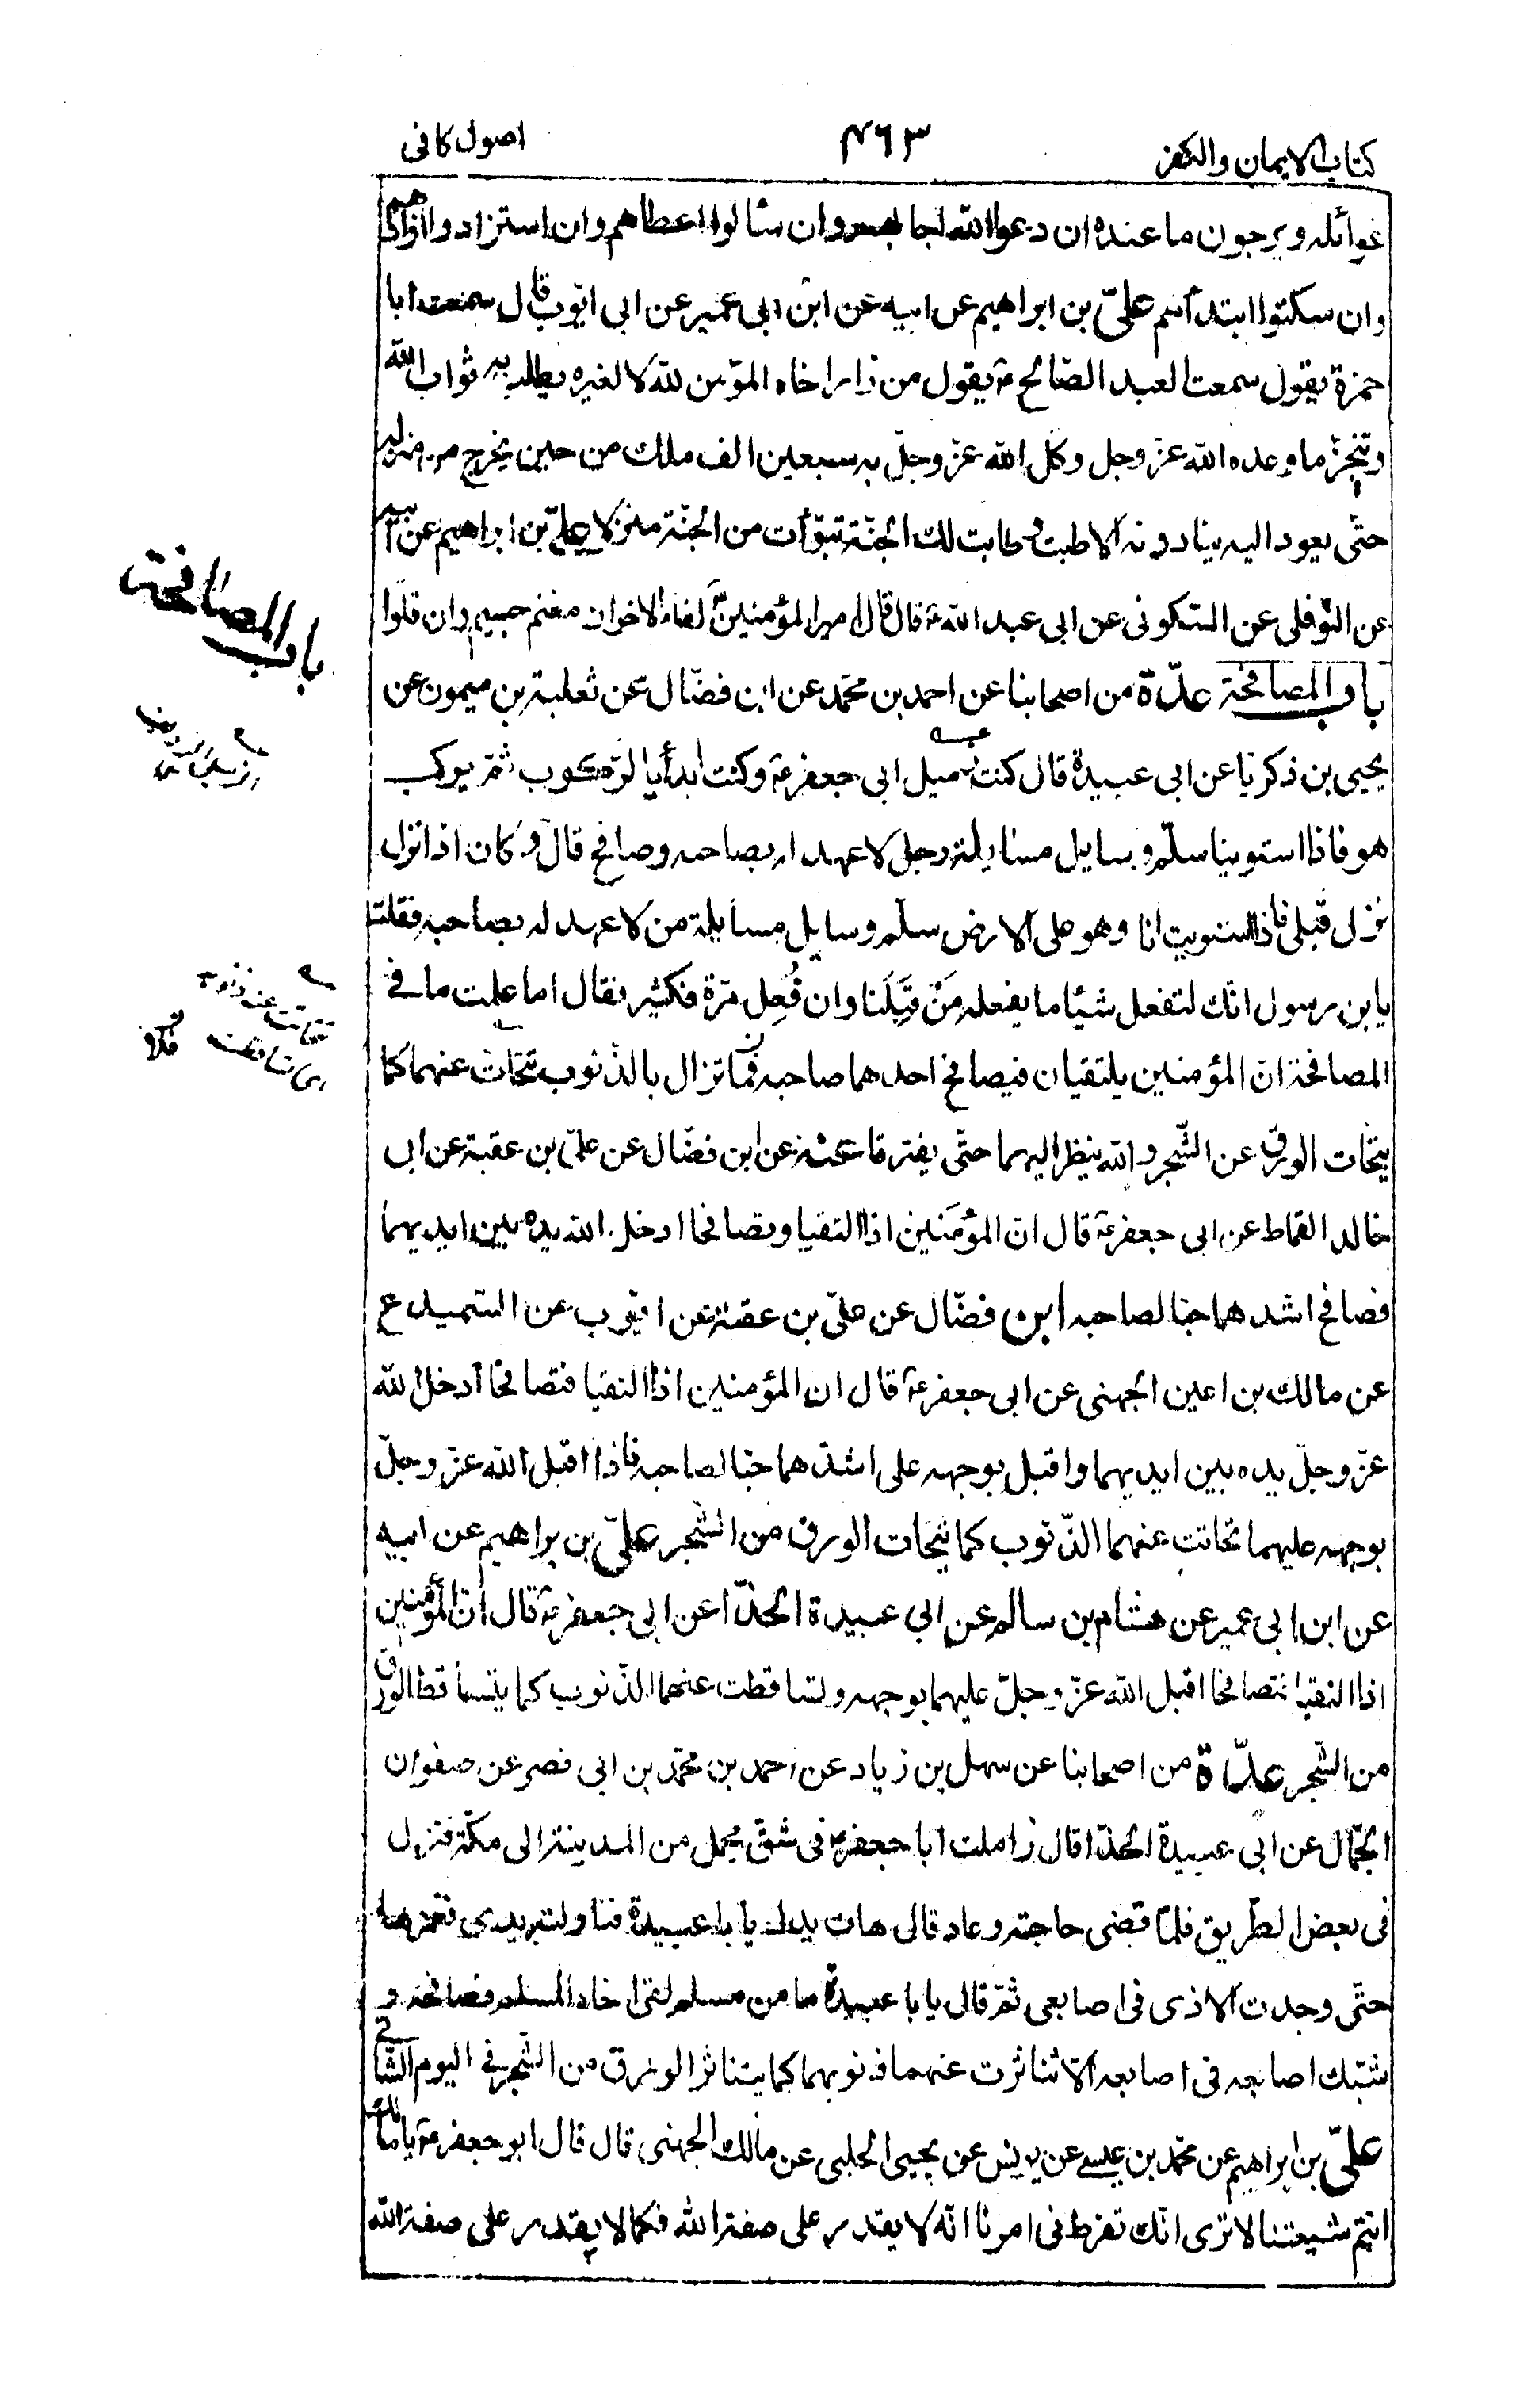 كتاب الايمان والكفر
٤٦٣
اصول كافى
غوائله ويرجون ما عنده ان دعوا الله اجابهم وان سئالوا اعطاهم وان استزادوا زادهم
وان سكتوا ابتدأهم علىّ بن ابراهيم عن ابيه عن ابن ابى عمير عن ابى ايّوب قال سمعت ابا
حمزة يقول سمعت العبد الصّالح ع يقول من زار اخاه المؤمن لله لا لغيره يطلب به ثواب الله
وتنجّز ما وعده الله عزّ وجل وكّل الله عزّ وجلّ به سبعين الف ملك من حين يخرج من منزله
حتّى يعود اليه ينادونه الا طبت وطابت لك الجنّة تبوّأت من الجنّة منزلا علىّ بن ابراهيم عن ابيه
عن النّوفلى عن السّكونى عن ابى عبد الله ع قال قال امير المؤمنين ع لقاء الاخوان مغنم جسيم وان قلّوا
باب المصافحة عدّة من اصحابنا عن احمد بن محمّد عن ابن فضّال عن ثعلبة بن ميمون عن
يحيى بن زكريّا عن ابى عبيدة قال كنت زميل ابى جعفر ع وكنت ابدأ بالرّكوب ثمّ يركب
هو فاذا استوينا سلّم وسايل مسايلة رجل لا عهد له بصاحبه وصافح قال وكان اذا نزل
نزل قبلى فاذا استويت انا وهو على الارض سلّم وسايل مسايلة من لا عهد له بصاحبه فقلت
يا بن رسول انّك لتفعل شيئا ما يفعله مَن قِبَلَنا وان فُعِل مرّة فكثير فقال اما علمت ما فى
المصافحة انّ المؤمنين يلتقيان فيصافح احدهما صاحبه فما تزال بالذّنوب تتحاتّ عنهما كما
يتحات الورق عن الشّجر والله ينظر اليهما حتّى يفترقا عنه عن ابن فضّال عن علىّ بن عقبة عن ابى
خالد القماط عن ابى جعفر ع قال انّ المؤمنين اذا التقيا وتصافحا ادخل الله يده بين ايديهما
فصافح اشدهما حبا لصاحبه ابن فضّال عن علىّ بن عقبة عن ايّوب عن السّميدع
عن مالك بن اعين الجهنى عن ابى جعفر ع قال ان المؤمنين اذا التقيا فتصافحا أدخل الله
عزّ وجلّ يده بين ايديهما واقبل بوجهه على اشدّهما حبّا لصاحبه فاذا اقبل الله عزّ وجلّ
بوجهه عليهما تحاتت عنهما الذّنوب كما يتحات الورق من الشّجر علىّ بن براهيم عن ابيه
عن ابن ابى عمير عن هشام بن سالم عن ابى عبيدة الحذّا عن ابى جعفر ع قال انّ المؤمنين
اذا التقيا فتصافحا اقبل الله عزّ وجلّ عليهما بوجهه وتساقطت عنهما الذّنوب كما يتساقط الورق
من الشّجر عدّة من اصحابنا عن سهل بن زياد عن احمد بن محمّد بن ابى نصر عن صفوان
الجمّال عن ابى عبيدة الحذّا قال زاملت ابا جعفر ع فى شقّ محمل من المدينة الى مكّة فنزل
فى بعض الطّريق فلمّا قضى حاجته وعاد قال هات يدك يا با عبيدة فناولته يدى فغمزها
حتّى وجدت الاذى فى اصابعى ثمّ قال يا با عبيدة ما من مسلم لقى اخاه المسلم فصافحه و
شبّك اصابعه فى اصابعه الّا تناثرت عنهما ذنوبهما كما يتناثر الورق من الشّجر فى اليوم الشّاتى
علىّ بن ابراهيم عن محمّد بن عيسى عن يونس عن يحيى الحلبى عن مالك الجهنى قال قال ابو جعفر ع يا مالك
انتم شيعتنا لا ترى انّك تفرط فى امرنا انّه لا يقدر على صفة الله فكما لا يقدر على صفة الله
باب المصافحة